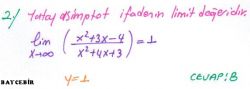 2-) Yatay asimptot ifadenin limit değeridir.
lim x→∞ (x²+3x-4 / x²+4x+3) = 1
y=1 CEVAP:B
BAYCEBİR